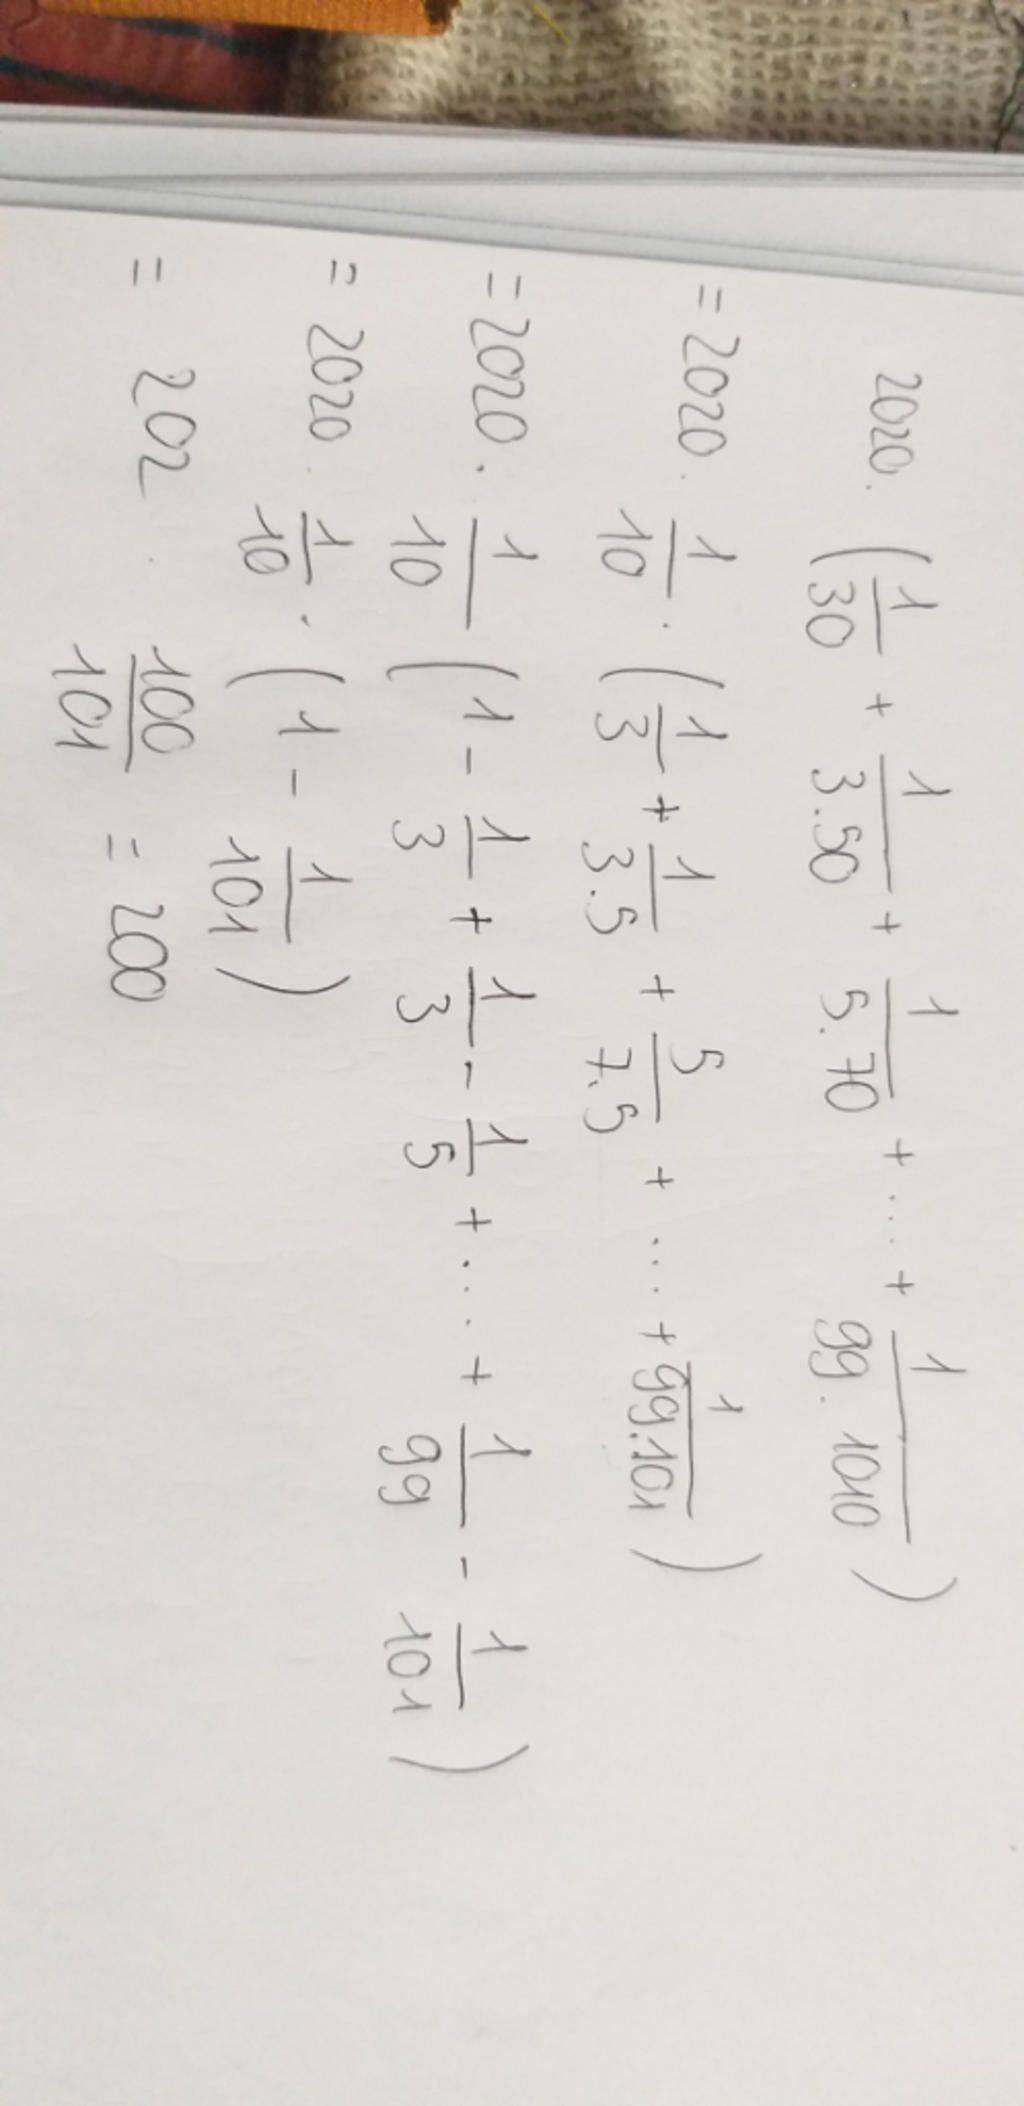 2020. (1/30 + 1/3.50 + 1/5.70 + .... + 1/99.1010)
= 2020. 1/10 . (1/3 + 1/3.5 + 5/7.5 + .... + 1/99.101)
= 2020. 1/10 (1 - 1/3 + 1/3 - 1/5 + .... + 1/99 - 1/101)
= 2020. 1/10 . (1 - 1/101)
= 202 . 100/101 = 200